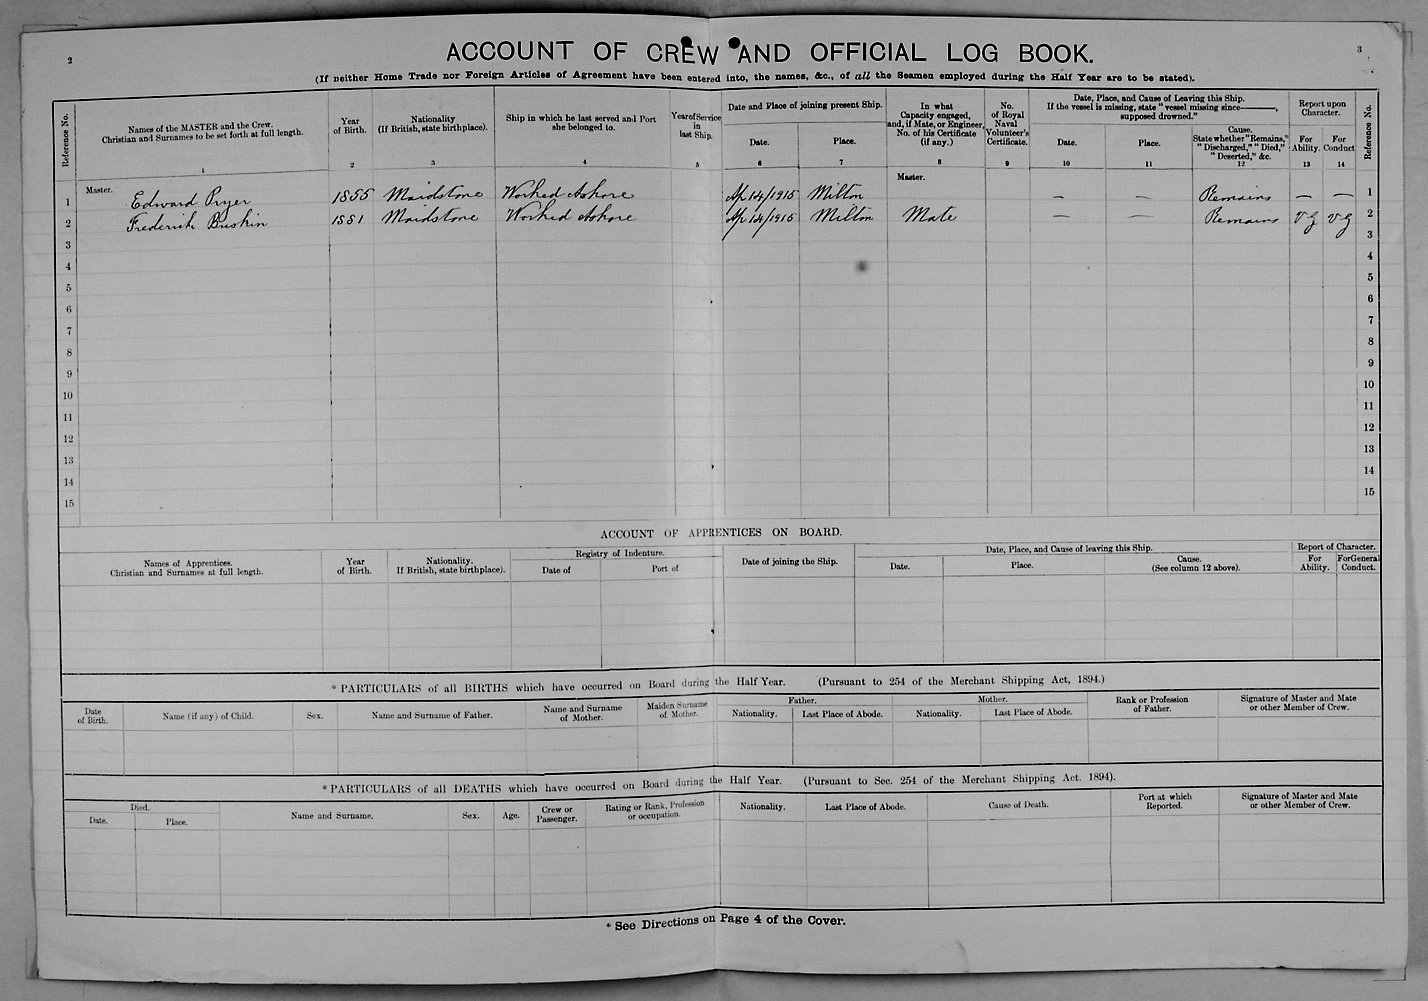 2
3
ACCOUNT OF CREW AND OFFICIAL LOG BOOK.
(If neither Home Trade nor Foreign Articles of Agreement have been entered into, the names, &c., of all the Seamen employed during the Half Year are to be stated).
Reference No.
Names of the MASTER and the Crew.
Christian and Surnames to be set forth at full length.
1
Year
of Birth.
2
Nationality
(If British, state birthplace).
3
Ship in which he last served and Port
she belonged to.
4
Year of Service
in
last Ship.
5
Date and Place of joining present Ship.
Date.
6
Place.
7
In what
Capacity engaged,
and, if Mate, or Engineer,
No. of his Certificate
(if any.)
8
No.
of Royal
Naval
Volunteer's
Certificate.
9
Date, Place, and Cause of Leaving this Ship.
If the vessel is missing, state "vessel missing since———,
supposed drowned."
Date.
10
Place.
11
Cause.
State whether "Remains,"
"Discharged," "Died,"
"Deserted," &c.
12
Report upon
Character.
For
Ability.
13
For
Conduct
14
Reference No.
Master.
Master.
1 Edward Pryer 1855 Maidstone Worked Ashore Ap 14/1915 Milton — — Remains — — 1
2 Frederick Buskin 1881 Maidstone Worked Ashore Ap 14/1915 Milton Mate — — Remains V G V G 2
3 3
4 4
5 5
6 6
7 7
8 8
9 9
10 10
11 11
12 12
13 13
14 14
15 15
ACCOUNT OF APPRENTICES ON BOARD.
Names of Apprentices.
Christian and Surnames at full length.
Year
of Birth.
Nationality.
If British, state birthplace).
Registry of Indenture.
Date of
Port of
Date of joining the Ship.
Date, Place, and Cause of leaving this Ship.
Date.
Place.
Cause.
(See column 12 above).
Report of Character.
For
Ability.
For General
Conduct.
* PARTICULARS of all BIRTHS which have occurred on Board during the Half Year. (Pursuant to 254 of the Merchant Shipping Act, 1894.)
Date
of Birth.
Name (if any) of Child.
Sex.
Name and Surname of Father.
Name and Surname
of Mother.
Maiden Surname
of Mother.
Father.
Nationality.
Last Place of Abode.
Mother.
Nationality.
Last Place of Abode.
Rank or Profession
of Father.
Signature of Master and Mate
or other Member of Crew.
* PARTICULARS of all DEATHS which have occurred on Board during the Half Year. (Pursuant to Sec. 254 of the Merchant Shipping Act. 1894).
Died.
Date.
Place.
Name and Surname.
Sex.
Age.
Crew or
Passenger.
Rating or Rank, Profession
or occupation.
Nationality.
Last Place of Abode.
Cause of Death.
Port at which
Reported.
Signature of Master and Mate
or other Member of Crew.
* See Directions on Page 4 of the Cover.